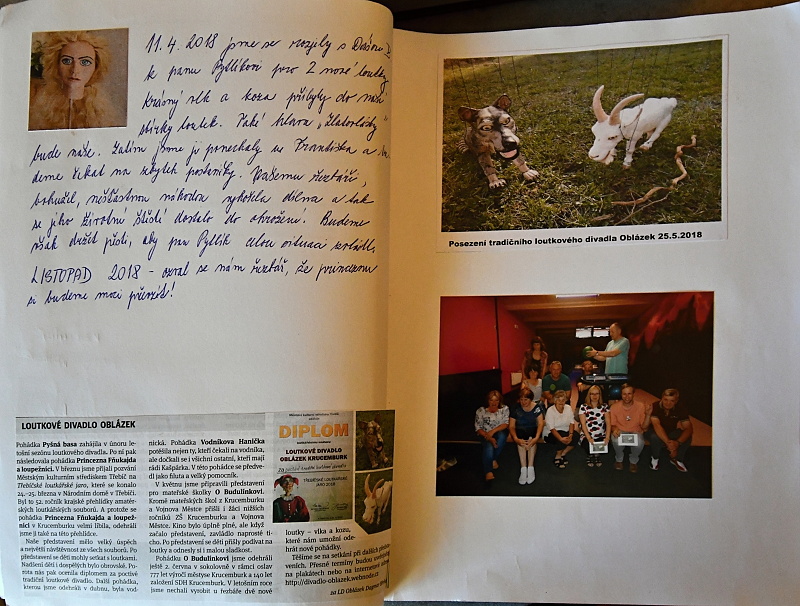 11. 4. 2018 jsme se rozjely s Dášou
k panu Pytlíkovi pro 2 nové loutky
Krásný vlk a koza přibyly do naší
sbírky loutek. Také hlava „Zlatovlásky"
bude naše. Zatím jsme ji ponechaly ve Františka a bu-
deme čekat na zbytek postavičky. Našemu řezbáři,
bohužel, nešťastnou náhodou vyhořela dílna a tak
se jeho životní štěstí dostalo do ohrožení. Budeme
však držet pěsti, aby pan Pytlík celou situaci zvládl.
LISTOPAD 2018 - ozval se nám řezbář, že princeznu
si budeme moci převzít!
LOUTKOVÉ DIVADLO OBLÁZEK
Pohádka Pyšná basa zahájila v únoru le-
tošní sezónu loutkového divadla. Po ní pak
následovala pohádka Princezna Fňukajda
a loupežníci. V březnu jsme přijali pozvání
Městským kulturním střediskem Třebíč na
Třebíčské loutkářské jaro, které se konalo
24.–25. března v Národním domě v Třebíči.
Byl to 52. ročník krajské přehlídky amatérs-
kých loutkářských souborů. A protože se
pohádka Princezna Fňukajda a loupež-
níci v Krucemburku velmi líbila, odehráli
jsme ji také na této přehlídce.
Naše představení mělo velký úspěch
a největší návštěvnost ze všech souborů. Po
představení se děti mohly setkat s loutkami.
Nadšení dětí i dospělých bylo obrovské. Poro-
ta nás pak ocenila diplomem za poctivé
tradiční loutkové divadlo. Další pohádka,
kterou jsme odehráli v dubnu, byla vod-
nická. Pohádka Vodníkova Hanička
potěšila nejen ty, kteří čekali na vodníka,
ale dočkali se i všichni ostatní, kteří mají
rádi Kašpárka. V této pohádce se předve-
dl jako filuta a velký pomocník.
V květnu jsme připravili představení
pro mateřské školky O Budulínkovi.
Kromě mateřských škol z Krucemburku
a Vojnova Městce přišli i žáci nižších
ročníků ZŠ Krucemburk a Vojnova
Městce. Kino bylo úplně plné, ale když
začalo představení, zavládlo naprosté ti-
cho. Po představení se děti přišly podívat na
loutky a odnesly si i malou sladkost.
Pohádku O Budulínkovi jsme odehráli
ještě 2. června v sokolovně v rámci oslav
777 let výročí městyse Krucemburk a 140 let
založení SDH Krucemburk. V letošním roce
jsme nechali vyrobit u řezbáře dvě nové
DIPLOM
LOUTKOVÉ DIVADLO
OBLÁZEK KRUCEMBURK
TŘEBÍČSKÉ LOUTKÁŘSKÉ
JARO 2018
loutky – vlka a kozu,
které nám umožní ode-
hrát nové pohádky.
Těšíme se na setkání při dalších představ-
veních. Přesné termíny budou
na plakátech nebo na internetové
http://divadlo-oblazek.webnode.cz
za LD Oblázek Dagmar
Posezení tradičního loutkového divadla Oblázek 25.5.2018